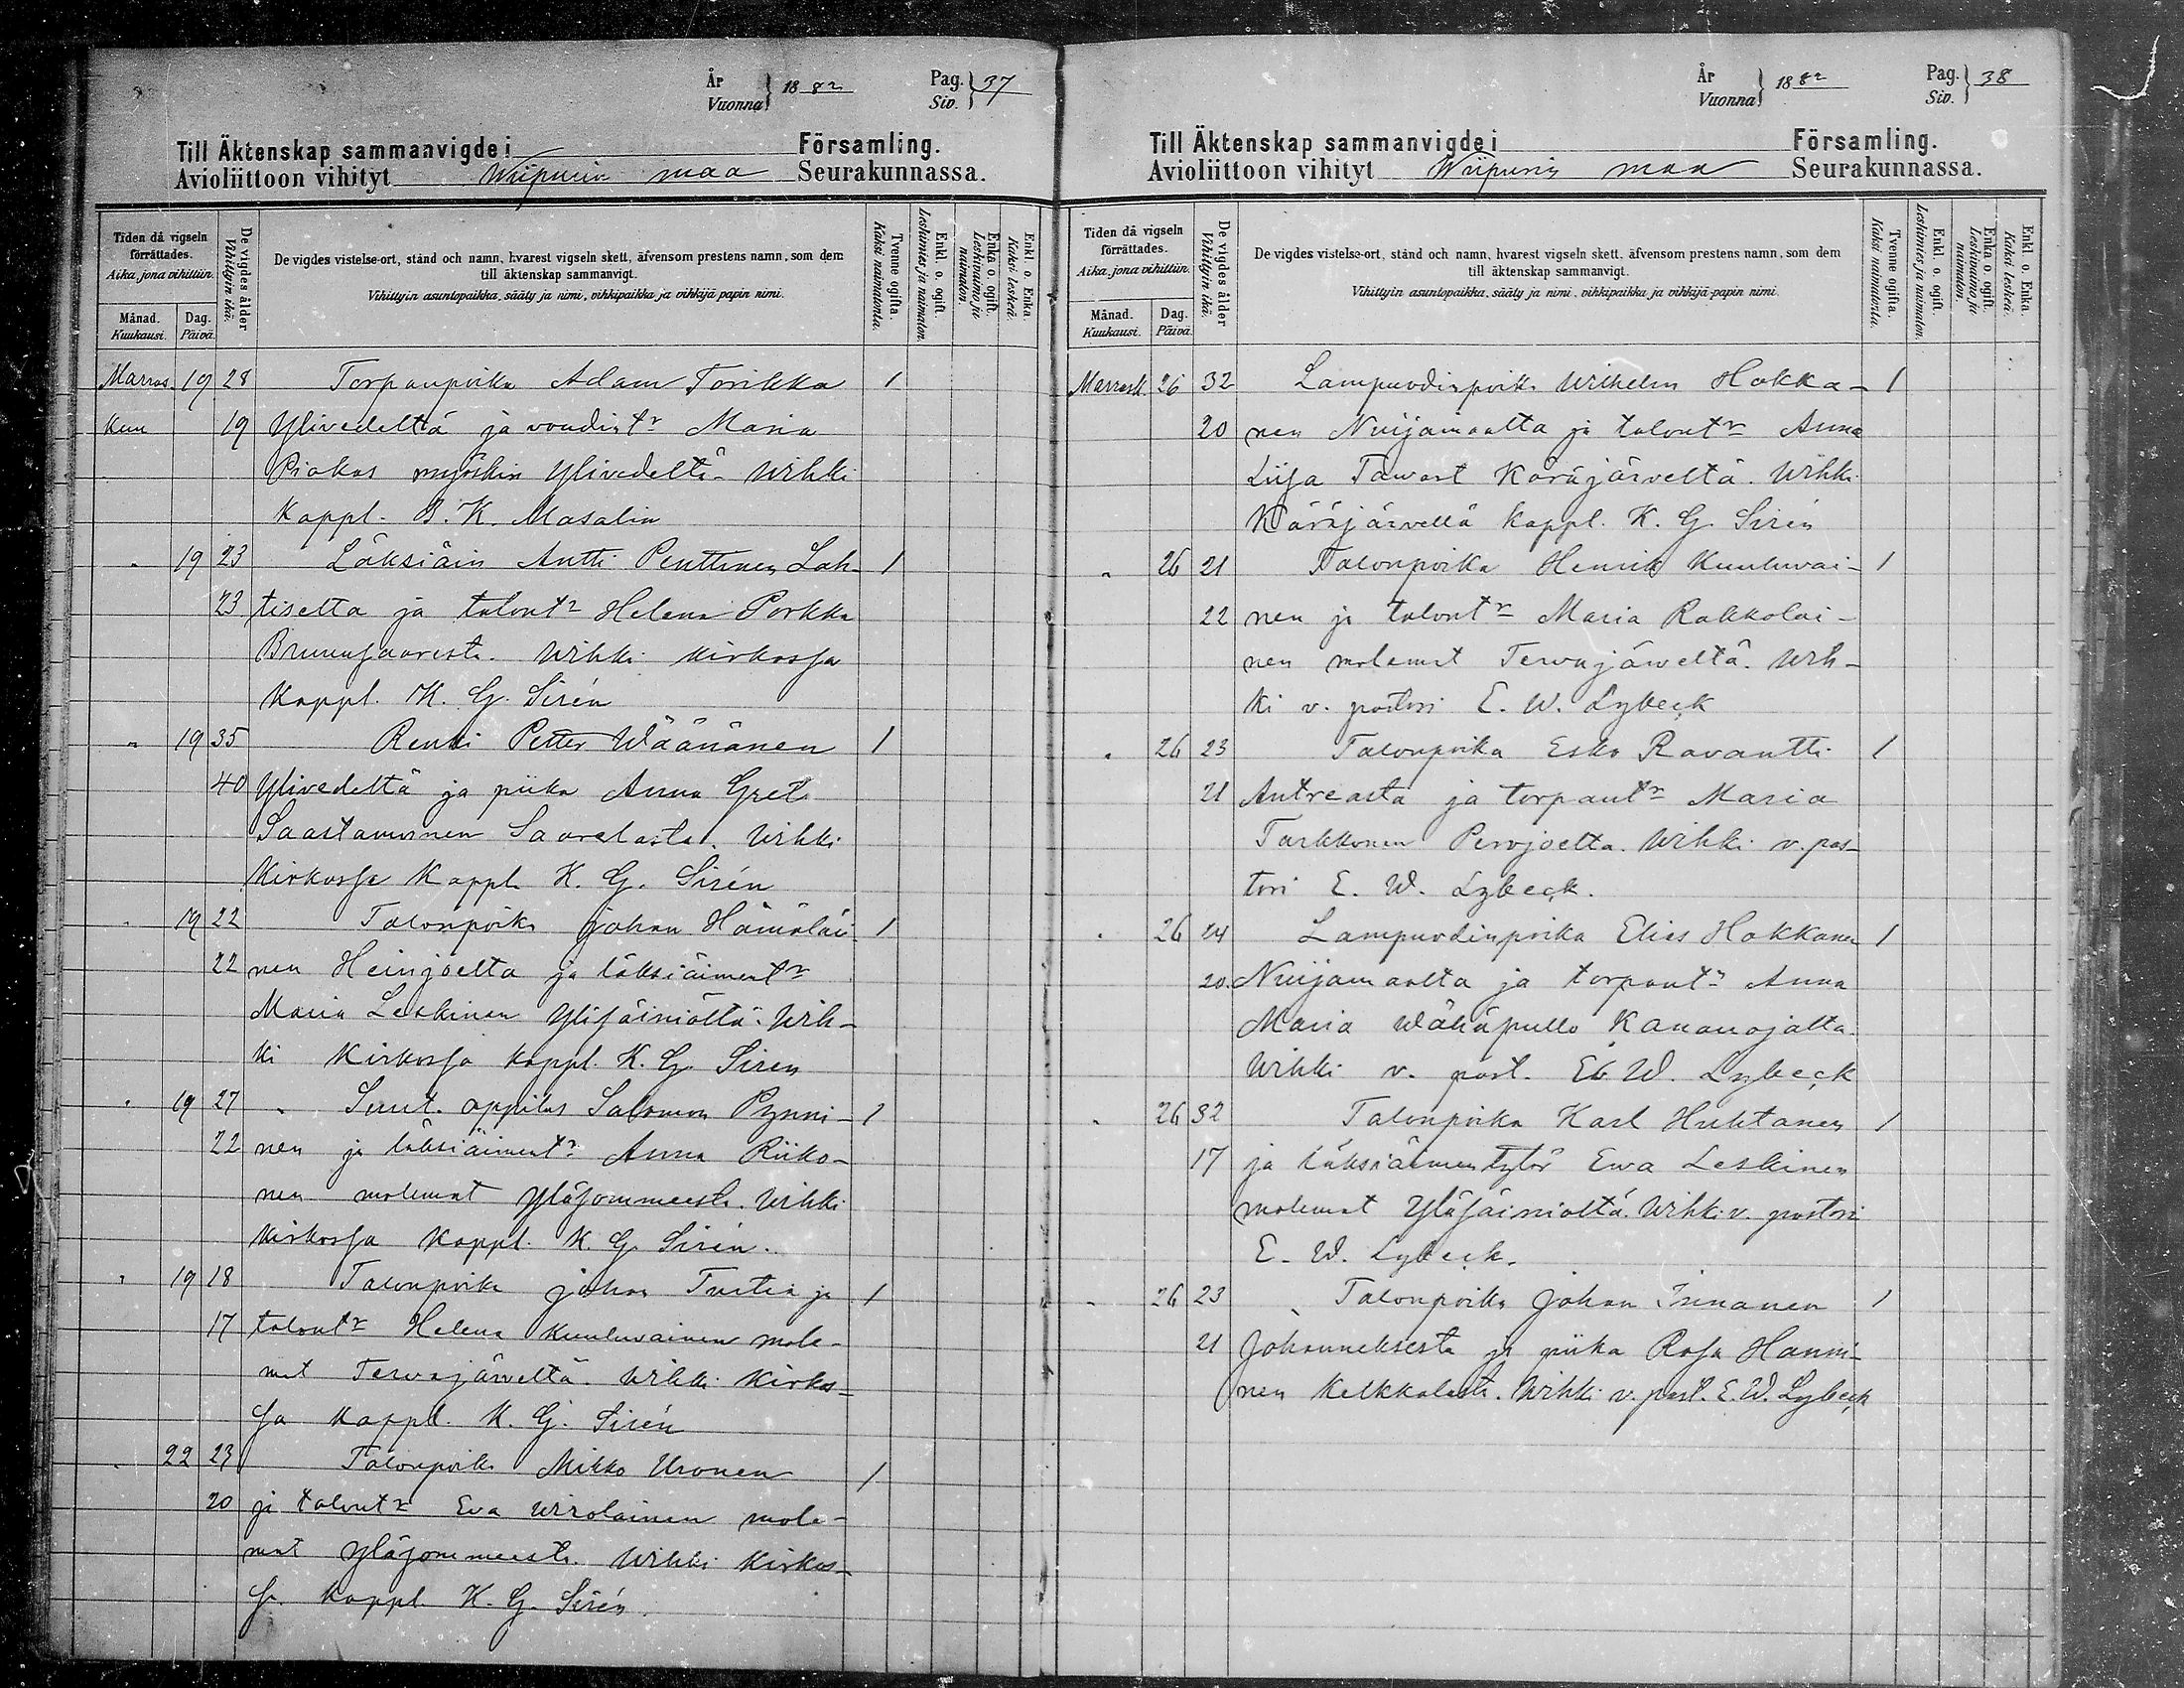 År
Vuonna } 1882
Pag.
Siv. } 37
Till Äktenskap sammanvigde i Församling.
Avioliittoon vihityt Wiipurin maa Seurakunnassa.
Tiden då vigseln förrättades.
Aika, jona vihittiin.
Månad.
Kuukausi.
Dag.
Päivä.
De vigdes ålder
Vihittyin ikä.
De vigdes vistelse-ort, stånd och namn, hvarest vigseln skett, äfvensom prestens namn, som dem
till äktenskap sammanvigt.
Vihittyin asuntopaikka, sääty ja nimi, vihkipaikka ja vihkijä papin nimi.
Tvenne ogifta.
Kaksi naimatonta.
Enkl. o. ogift.
Leskimies ja naimaton.
Enka o. ogift.
Leskivaimo ja naimaton.
Enkl. o. Enka.
Kaksi leskeä.
Marras 19 28 Torpanpoika Adam Torikka 1
kuu 19 Ylivedeltä ja voudint:r Maria
Piakas myöskin Ylivedeltä. Wihki
Kappl. B. K. Masalin
" 19 23 Läksiäin Antti Penttinen Lah- 1
23 tiselta ja talont:r Helena Porkka
Wihki kirkossa
Kappl. K. G. Sirén
" 19 35 Renki Petter Wäänänen 1
40 Ylivedeltä ja piika Anna Gret.
Saastamoinen Saarelasta. Wihki
kirkossa Kappl. K. G. Sirén
" 19 22 Talonpoika Johan Hämäläi- 1
22 nen Heinjoelta ja läksiäiment:r
Maria Leskinen Yläsäiniöltä. Wih-
ki kirkossa kappl. K. G. Siren
" 19 27 Suut. oppilas Salomon Pynni- 1
22 nen ja läksiäiment:r Anna Riiko-
nen molemat Yläsommeesta. Wihki
kirkossa Kappl. K. G. Sirén.
" 19 18 Talonpoika Johan Tuitia ja 1
17 talont:r Helena Kuuluvainen mole-
mat Tervajärveltä. Wihki kirkos-
sa kappl. K. G. Sirén
" 22 23 Talonpoik. Mikko Uronen 1
20 ja talont:r Eva Wirolainen mole-
mat Yläsommeesta. Wihki kirkos-
sa. Kappl. K. G. Sirén.
År
Vuonna } 1882
Pag.
Siv. } 38
Till Äktenskap sammanvigde i Församling.
Avioliittoon vihityt Wiipurin maa Seurakunnassa.
Tiden då vigseln förrättades.
Aika, jona vihittiin.
Månad.
Kuukausi.
Dag.
Päivä.
De vigdes ålder
Vihittyin ikä.
De vigdes vistelse-ort, stånd och namn, hvarest vigseln skett, äfvensom prestens namn, som dem
till äktenskap sammanvigt.
Vihittyin asuntopaikka, sääty ja nimi, vihkipaikka ja vihkijä papin nimi.
Tvenne ogifta.
Kaksi naimatonta.
Enkl. o. ogift.
Leskimies ja naimaton.
Enka o. ogift.
Leskivaimo ja naimaton.
Enkl. o. Enka.
Kaksi leskeä.
Marrask. 26 32 Lampuodinpoik. Wilhelm Hakka- 1
20 nen Nuijamaalta ja talont:r Anna
Liisa Tawast Käräjärveltä. Wihki
Käräjärvellä kappl. K. G. Sirén
" 26 21 Talonpoika Henrik Kuuluvai- 1
22 nen ja talont:r Maria Rakkolai-
nen molemat Tervajärveltä. Wih-
ki v. pastori E. W. Lybeck
" 26 23 Talonpoika Esko Ravantti 1
21 Antreasta ja torpant:r Maria
Tarkkonen Perojoelta. Wihki v. pas-
tori E. W. Lybeck.
" 26 24 Lampuodinpoika Elias Hakkanen 1
20. Nuijamaalta ja torpant:r Anna
Maria Wähäpullo Kananojalta.
Wihki v. past. E. W. Lybeck
" 26 32 Talonpoika Karl Huhtanen 1
17 ja läksiäimentytär Ewa Leskinen
molemat Yläsäiniöltä. Wihki v. pastori
E. W. Lybeck.
" 26 23 Talonpoika Johan Innanen 1
21 Johanneksesta ja piika Rosa Hanni-
nen Kelkkalasta. Wihki v. past. E. W. Lybeck